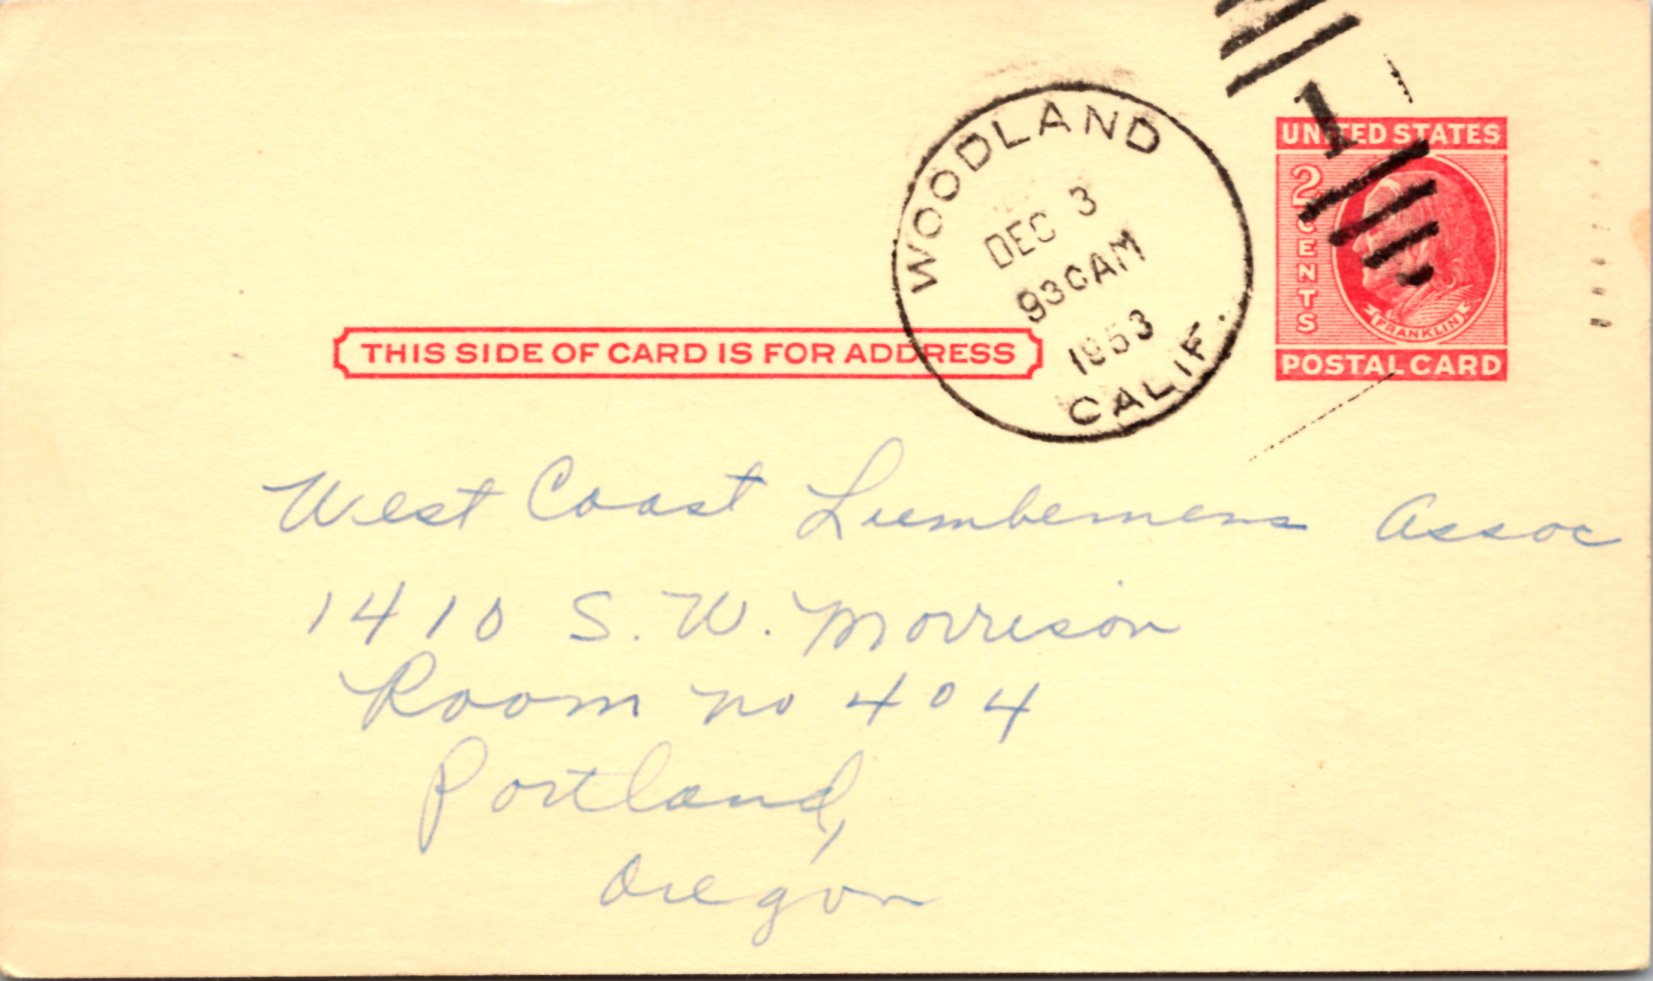 WOODLAND
DEC 3
930AM
1953
CALIF.
1
UNITED STATES
2
CENTS
FRANKLIN
POSTAL CARD
THIS SIDE OF CARD IS FOR ADDRESS
West Coast Lumbermens Assoc
1410 S. W. Morrison
Room no 404
Portland,
Oregon